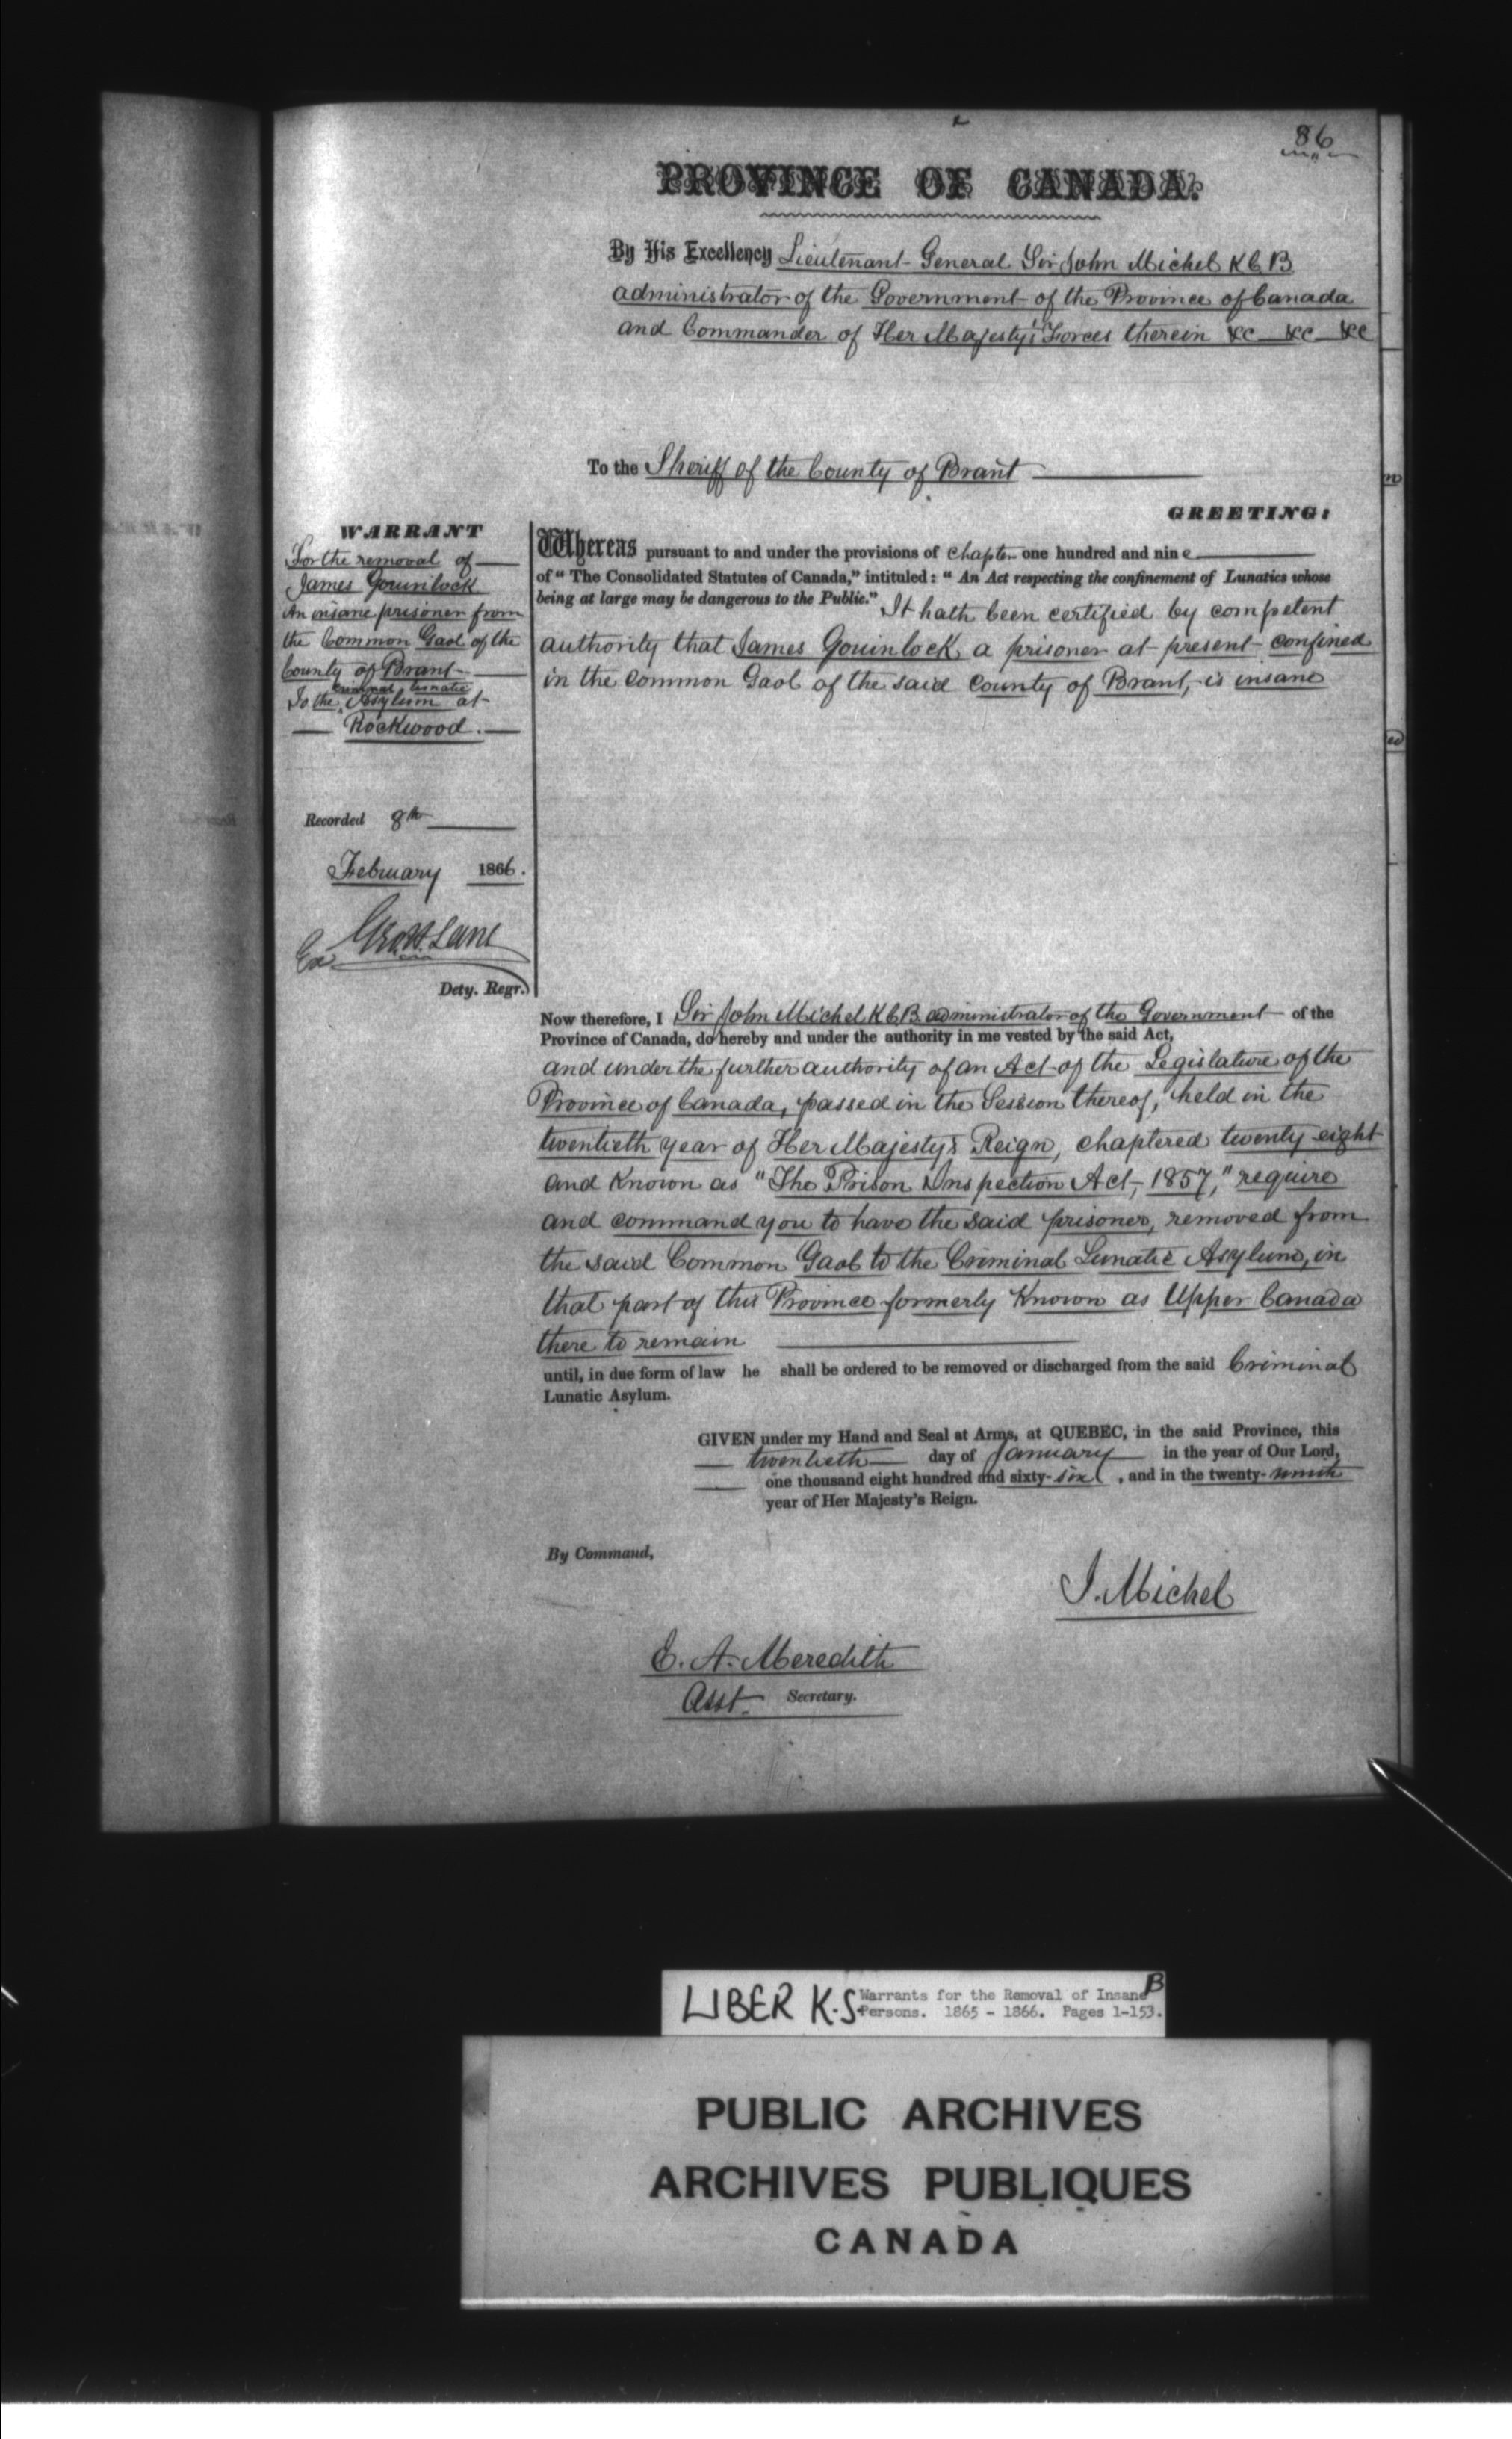 86
PROVINCE OF CANADA.
By His Excellency Lieutenant General Sir John Michel K C B
administrator of the Government of the Province of Canada
and Commander of Her Majesty's Forces therein &c &c &c
To the Sheriff of the County of Brant
GREETING:
WARRANT
For the removal of
James Gouinlock
An insane prisoner from
the Common Gaol of the
County of Brant
criminal lunatic
To the Asylum at
Rockwood.
Recorded 8th
February 1866.
Geo. H. Lane
Dety. Regr.
Whereas pursuant to and under the provisions of chapter one hundred and nine
of "The Consolidated Statutes of Canada," intituled: "An Act respecting the confinement of Lunatics whose
being at large may be dangerous to the Public." It hath been certified by competent
authority that James Gouinlock, a prisoner at present confined
in the Common Gaol of the said County of Brant, is insane
Now therefore, I Sir John Michel K C B administrator of the Government of the
Province of Canada, do hereby and under the authority in me vested by the said Act,
and under the further authority of an Act of the Legislature of the
Province of Canada, passed in the Session thereof, held in the
twentieth year of Her Majesty's Reign, chaptered twenty eight
and Known as "The Prison Inspection Act, 1857," require
and command you to have the said prisoner, removed from
the said Common Gaol to the Criminal Lunatic Asylum, in
that part of this Province formerly Known as Upper Canada
there to remain
until, in due form of law he shall be ordered to be removed or discharged from the said Criminal
Lunatic Asylum.
GIVEN under my Hand and Seal at Arms, at QUEBEC, in the said Province, this
twentieth day of January in the year of Our Lord,
one thousand eight hundred and sixty-six, and in the twenty-ninth
year of Her Majesty's Reign.
By Command,
J. Michel
E. A. Meredith
Asst. Secretary.
LIBER K.S. Warrants for the Removal of Insane B
Persons. 1865 - 1866. Pages 1-153.
PUBLIC ARCHIVES
ARCHIVES PUBLIQUES
CANADA